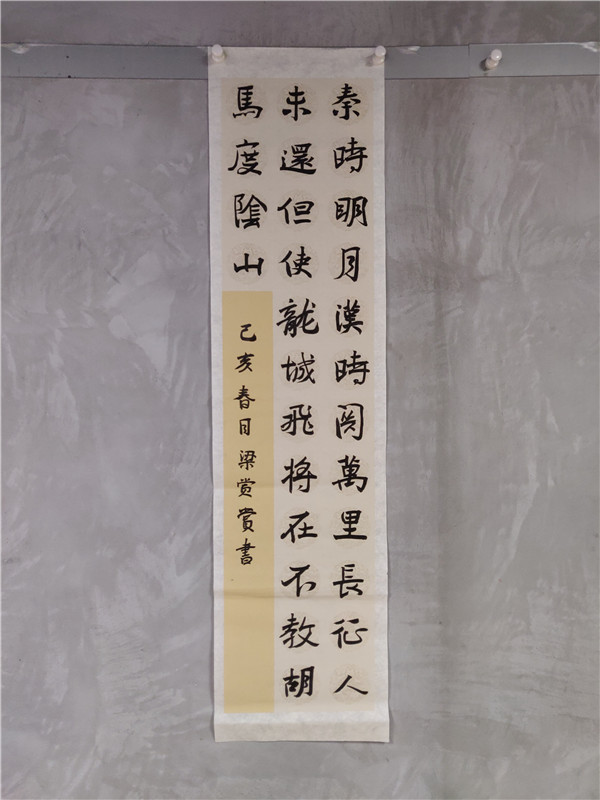 秦時明月漢時関萬里長征人
未還但使龍城飛将在不教胡
馬度陰山
己亥春日梁赏赏書